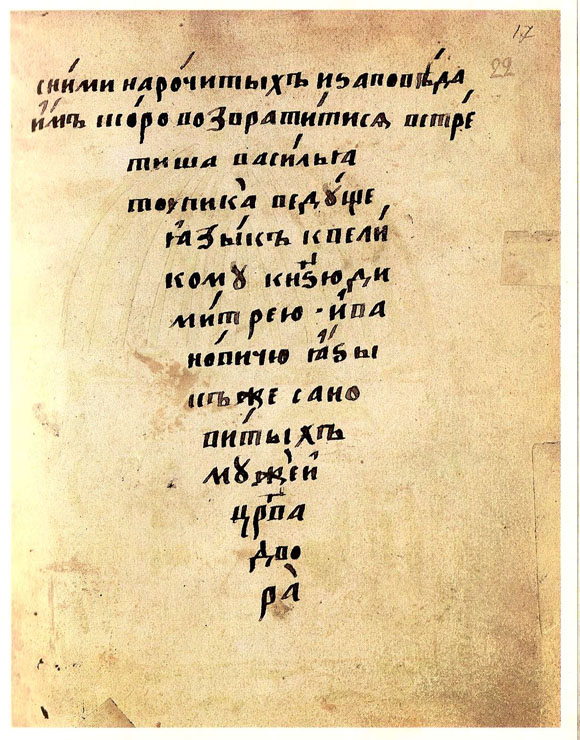 17
22
сни́ми наро́читыхъ иѕаповѣ́да
и҆́мъ ско́ро воꙁврати́тисѧ встре́
тиша васи́льꙗ
тоупика̀ ведꙋ́ще
ꙗ҆ꙁы́къ квели́
комꙋ кн҃ѕюди
ми́трею · и҆ва
но́вичю ꙗ҆ѕы
къже сано
ви́тыхъ
мꙋже́й
цр҃ва
дво
ра̀